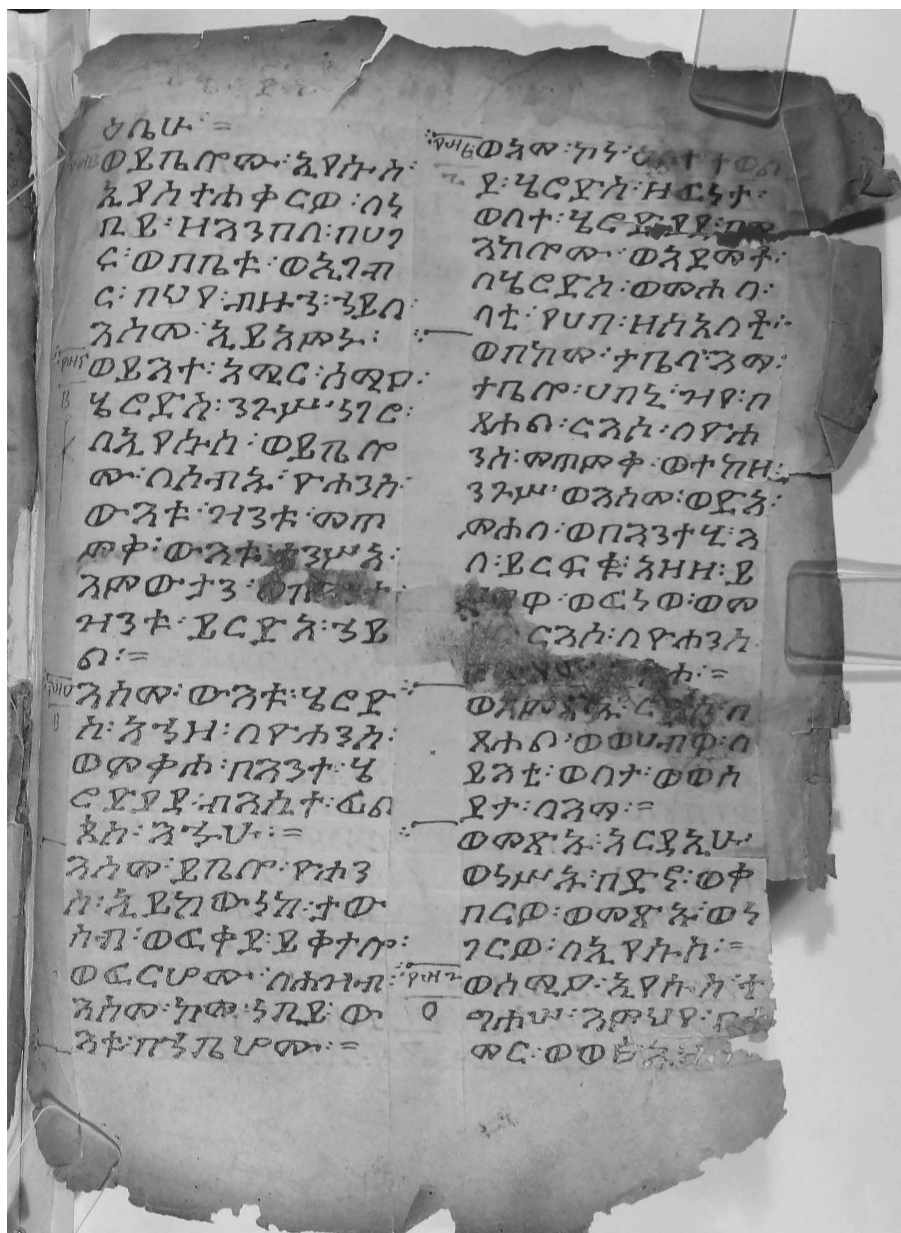 ዕቤሁ፡=
ወይቤሎሙ፡ኢየሱስ፡
ኢያስተሐቅርዎ፡ለነ
ቢይ፡ዘእንበለ፡በሀገ
ሩ፡ወበቤቱ፡ወኢገብ
ረ፡በህየ፡ብዙኀ፡ኀይለ
እስመ፡ኢይአምኑ፡
ወይእተ፡አሚረ፡ሰሚዖ፡
ሄሮድስ፡ንጉሥ፡ነገሮ፡
ለኢየሱስ፡ወይቤሎ
ሙ፡ለሰብኡ፡ዮሐንስ፡
ውእቱ፡ዝንቱ፡መጠ
ምቅ፡ውእቱ፡ተንሥአ፡
እምውታን፡
ዝንቱ፡ይርድአ፡ኀይ
ል፡=
እስመ፡ውእቱ፡ሄሮድ
ስ፡አኀዘ፡ለዮሐንስ፡
ወሞቅሐ፡በእንተ፡ሄ
ሮድያዳ፡ብእሲተ፡ፊል
ጶስ፡እኁሁ፡=
እስመ፡ይቤሎ፡ዮሐን
ስ፡ኢይከውነከ፡ታው
ስብ፡ወፈቀደ፡ይቅተሎ፡
ወፈርሆሙ፡ለሕዝብ፡
እስመ፡ከመ፡ነቢይ፡ው
እቱ፡በኀቤሆሙ፡=
ወአመ፡ኮነ፡
ሄሮድስ፡ዘፈነት፡
ወለተ፡ሄሮድያዳ፡በመ
እከሎሙ፡ወአደመቶ፡
ለሄሮድስ፡ወመሐለ፡
ላቲ፡የሀባ፡ዘሰአለቶ፡
ወበከመ፡ታቤላ፡እማ፡
ትቤሎ፡ሀበኒ፡ዝየ፡በ
ጻሕል፡ርእሰ፡ለዮሐ
ንስ፡መጠምቅ፡ወተከዘ፡
ንጉሥ፡ወእስመ፡ወድአ፡
መሐለ፡ወበእንተ፡እ
ለ፡ይረፍቁ፡አዘዘ፡የ
ወፈነወ፡ወመ
ርእሰ፡ለዮሐንስ
ርእሶ፡በ
ጻሕል፡ወወሀብዋ፡ለ
ይእቲ፡ወለት፡ወወሰ
ደት፡ለእማ፡=
ወመጽኡ፡አርዳኢሁ፡
ወነሥኡ፡በድኖ፡ወቀ
በርዎ፡ወመጽኡ፡ወነ
ገርዎ፡ለኢየሱስ፡=
ወሰሚዖ፡ኢየሱስ፡ተ
ግሕሠ፡እምህየ፡